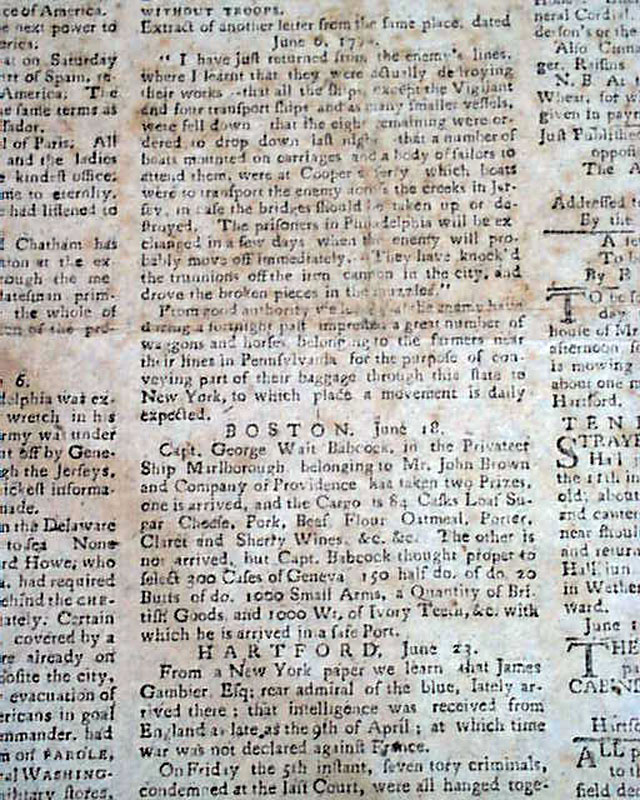 ce of America.
e next power to
erica.
at on Saturday
rt of Spain, re-
America; The
e same terms as
ssador.
l of Paris. All
and the ladies
e kindest office;
me to eternity.
e had listened to
d Chatham has
ton at the ex-
rough the me
statesman prim-
the whole of
en of the pre-
6.
delphia was ex-
wretch in his
rmy was under
nt off by Gene-
gh the Jerseys,
ickest informa-
nade.
n the Delaware
to sea None
rd Howe, who
a. had required
ehind the CHE-
iately. Certain
covered by a
re already on
posite the city,
evacuation of
ericans in goal
mmander. had
m on PAROLE,
al WASHING-
military stores,
WITHOUT TROOPS.
Extract of another letter from the same place, dated
June 6, 177
" I have just returned from the enemy's lines,
where I learnt that they were actually destroying
their works --that all the ships, except the Vigilant
and four transport ships and as many smaller vessels,
were fell down that the eight remaining were or-
dered to drop down last night that a number of
boats mounted on carriages and a body of sailors to
attend them, were at Cooper's ferry which boats
were to transport the enemy across the creeks in Jer-
sey, in case the bridges should be taken up or de-
stroyed. The prisoners in Philadelphia will be ex
changed in a few days when the enemy will pro-
bably move off immediately. They have knock'd
the trunnions off the iron cannon in the city, and
drove the broken pieces in the muzzles."
From good authority we learn that the enemy have
during a fortnight past impressed a great number of
waggons and horses belonging to the farmers near
their lines in Pennsylvania for the purpose of con-
veying part of their baggage through this state to
New York, to which place a movement is daily
expected.
BOSTON, June 18.
Capt. George Wait Babcock, in the Privateer
Ship Marlborough belonging to Mr. John Brown
and Company of Providence has taken two Prizes,
one is arrived, and the Cargo is 84 Casks Loaf Su-
gar Cheese, Pork, Beef Flour Oatmeal, Porter,
Claret and Sherry Wines. &c. &c. The other is
not arrived, but Capt. Babcock thought proper to
select 300 Cases of Geneva 150 half do. of do. 20
Butts of do. 1000 Small Arms, a Quantity of Bri-
tish Goods, and 1000 Wt. of Ivory Teeth, &c. with
which he is arrived in a safe Port.
HARTFORD, June 23.
From a New York paper we learn that James
Gambier, Esq; rear admiral of the blue, lately ar-
rived there; that intelligence was received from
England as late as the 9th of April; at which time
war was not declared against France.
On Friday the 5th instant, seven tory criminals,
condemned at the last Court, were all hanged toge-
neral Cordial
derson's or the
Also Cinna
ger, Raisins
N. B. At
Wheat, for w
given in paym
Just Published
opposi
The A
Addressed to
By the
A te
To b
By B
TO be
day
house of Mr.
afternoon fo
is mowing
about one m
Hartford.
TEN
STRAYE
Hal
the 11th in
old; about
and canter
near should
and return
Half jun
in Wether
ward.
June 1
THE
pa
CABIN
Hartfo
ALL p
to th
field dec